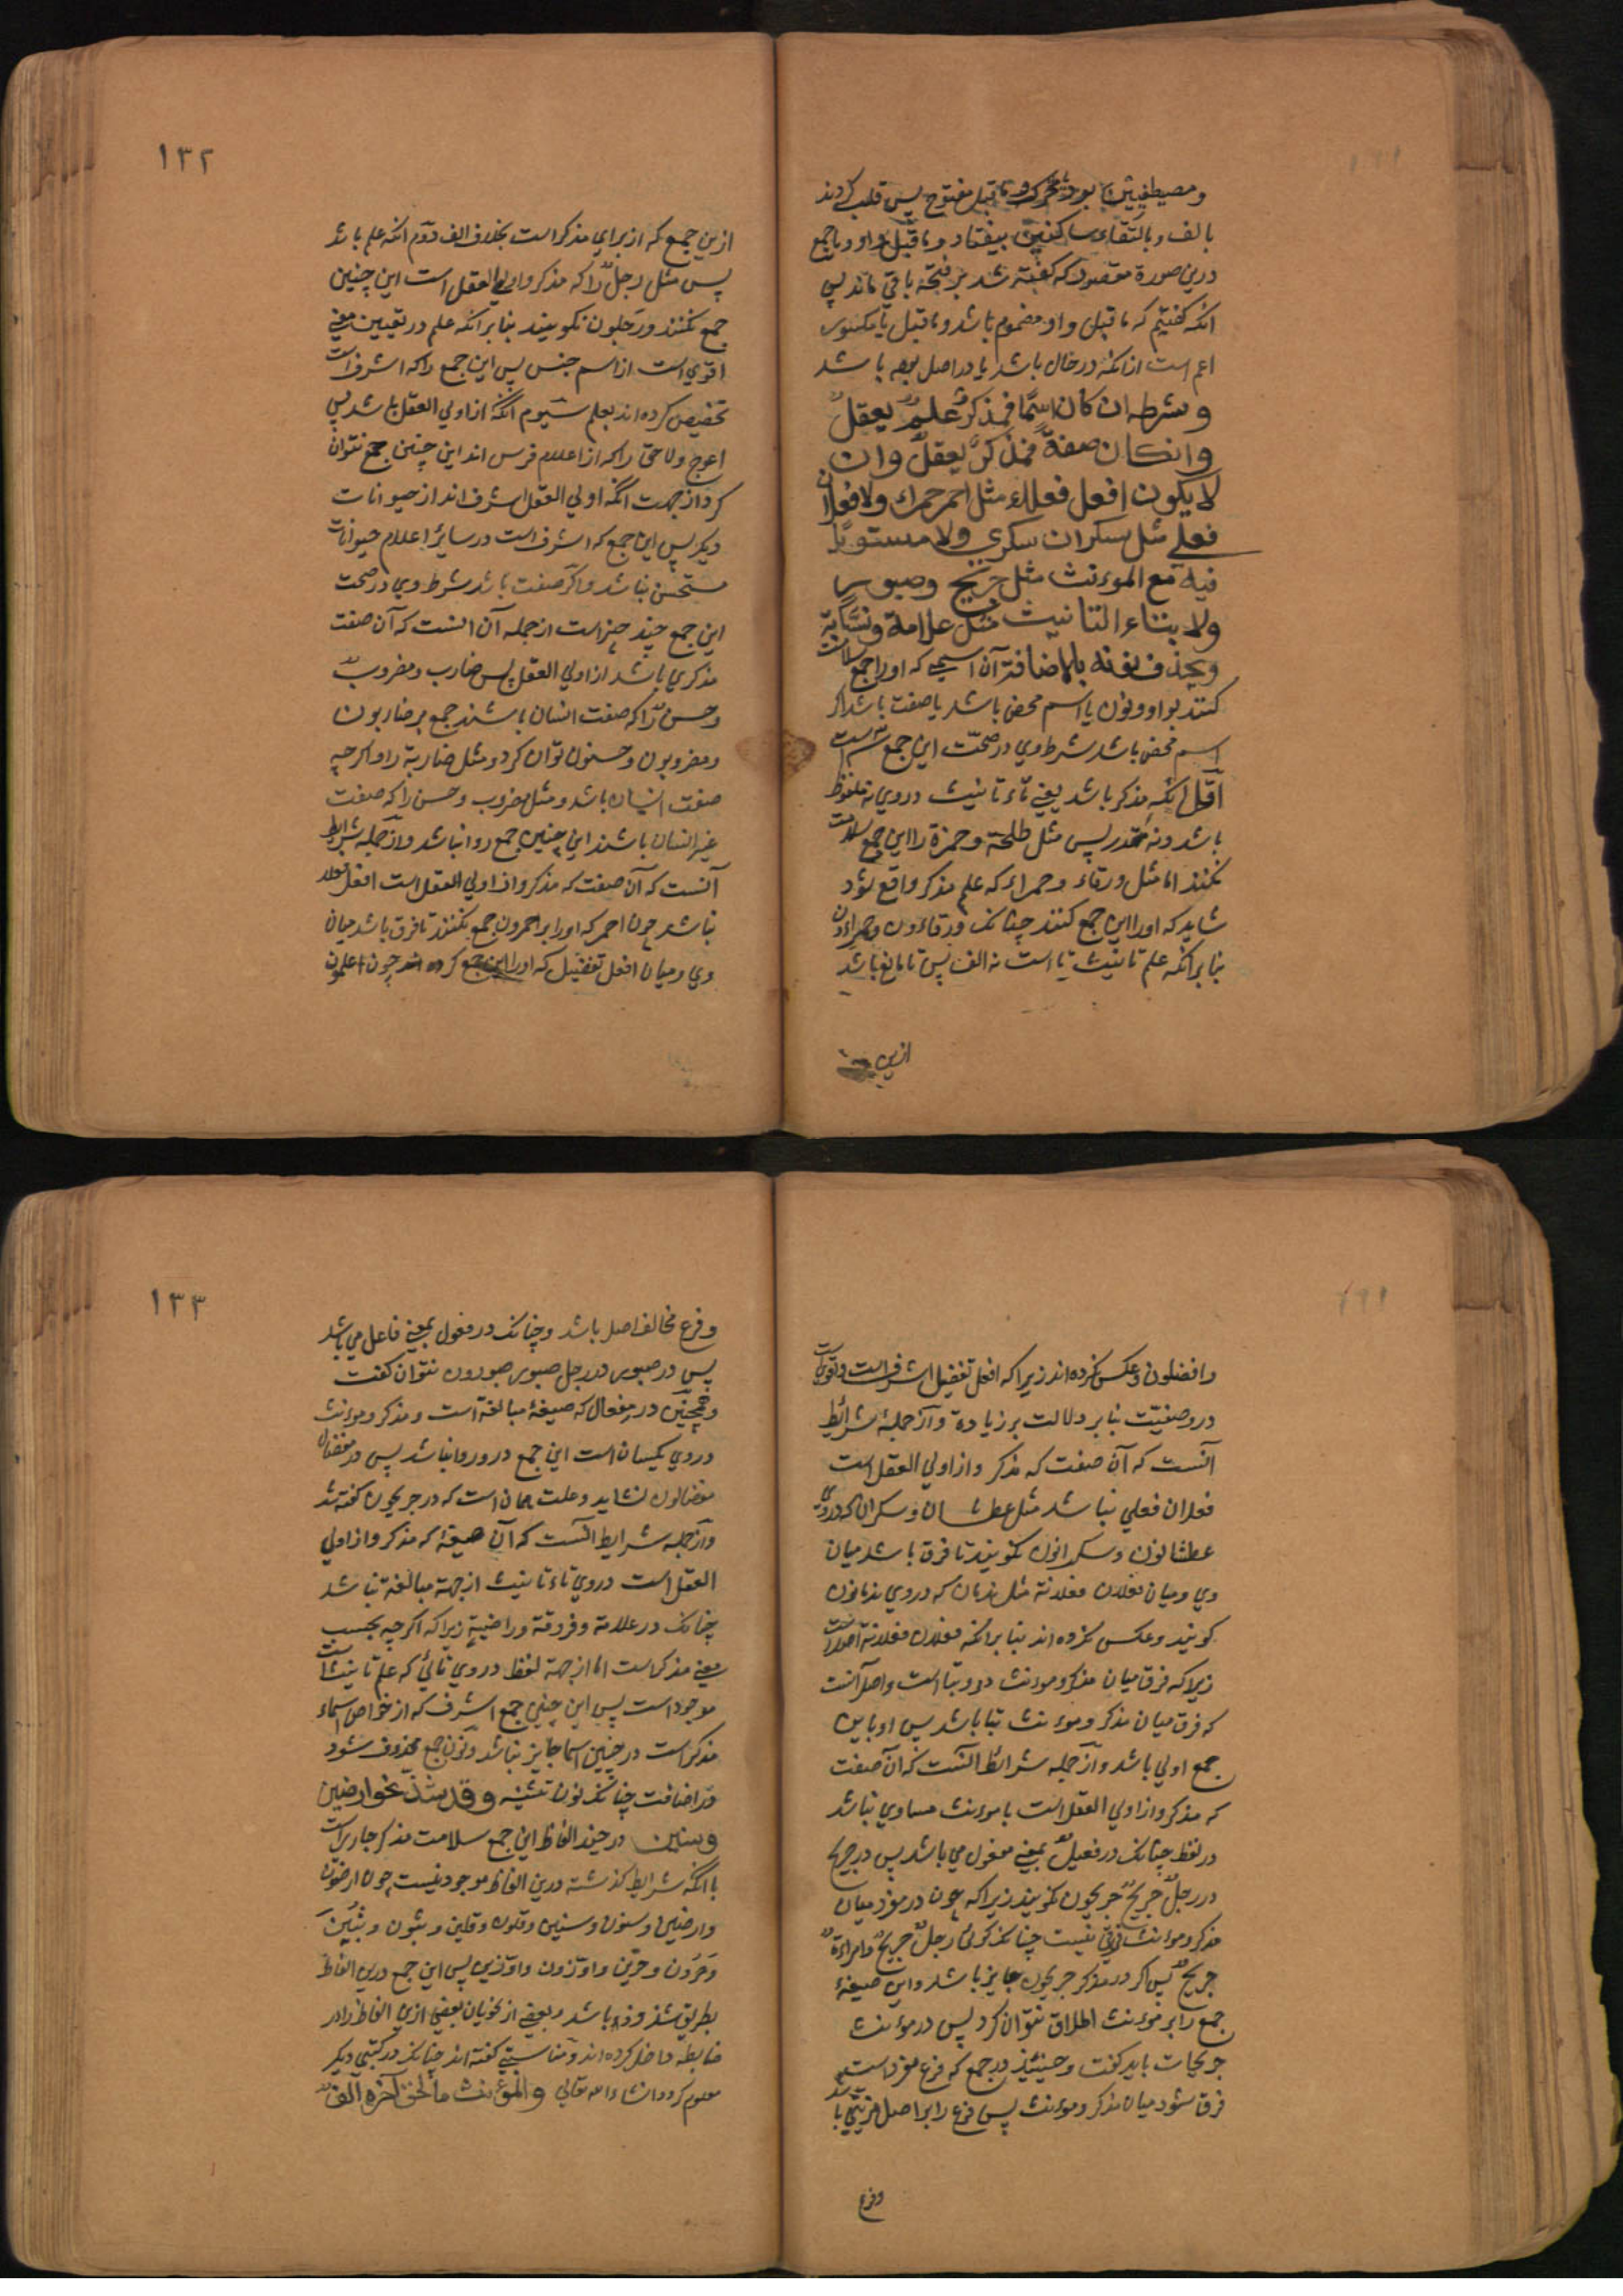 و مصطفیین یا بود متحرک و ما قبل مفتوح پس قلب کردند
بالف و بالتقای ساکنین بیفتاد و ما قبل واو و یا جمع
درین صورة مقصور که گفته شد بر فتحه باقی ماند پس
انکه کفتیم که ما قبل واو مضموم باشد و ما قبل یا مکسور
اعم است از انکه در حال باشد یا در اصل بوده باشد
و شرطه ان کان اسمًا فمذکرٌ علمٌ یعقلُ
وانکان صفةً فمذکرٌ یعقلُ وان
لا یکون افعل فعلاء مثل احمر حمراء ولا فعلان
فعلی مثل سکران سکری ولا مستویًا
فیه مع الموءنث مثل جریح وصبور
ولا بتاء التانیث مثل علامة ونسّابة
ویحذف نونه بالاضافة آن اسمی که او را جمع سلامت
کنند بواو و نون یا اسم محض باشد یا صفت باشد اگر
اسم محض باشد شرط وی در صحّت این جمع سه است
اوّل انکه مذکر باشد یعنی تاء تانیث در وی نه ملفوظ
باشد و نه مقدر پس مثل طلحة و حمزة را این جمع سلامت
نکنند اما مثل ورقاء و حمراء که علم مذکر واقع شود
شاید که او را این جمع کنند چنانک ورقاءون و حمراءون
بنا بر انکه علم تانیث تا است نه الف پس تا مانع باشد
ازین
۱۳۲
ازین جمع که از برای مذکر است بخلاف الف دوّم انکه علم باشد
پس مثل رجل را که مذکر و اولی العقل است این چنین
جمع نکنند و رجلون نکویند بنا بر انکه علم در تعیین معنی
اقوی است از اسم جنس پس این جمع را که اشرف است
تخصیص کرده اند بعلم سیوم انکه از اولی العقل باشد پس
اعوج ولاحق را که از اعلام فرس اند این چنین جمع نتوان
کرد از جهت انکه اولی العقل اشرف اند از حیوانات
دیکر پس این جمع که اشرف است در سایر اعلام حیوانات
مستحسن نباشد و اکر صفت باشد شرط وی در صحت
این جمع چند چیز است از جمله آن انست که آن صفت
مذکری باشد از اولی العقل پس ضارب و مضروب
و حسن را که صفت انسان باشند جمع بر ضاربون
و مضروبون و حسنون توان کرد و مثل ضاربة را و اکرچه
صفت انسان باشد و مثل مضروب و حسن را که صفت
غیر انسان باشند این چنین جمع روا نباشد و از جمله شرایط
آنست که آن صفت که مذکر و از اولی العقل است افعل فعلاء
نباشد چون احمر که او را بر احمرون جمع نکنند تا فرق باشد میان
وی و میان افعل تفضیل که او را این جمع کرده اند چون اعلمون
و افضلون و عکس نکرده اند زیرا که افعل تفضیل اشرف است و اقوی است
در وصفیّت بنا بر دلالت بر زیادة و از جمله شرائط
آنست که آن صفت که مذکر و از اولی العقل است
فعلان فعلی نباشد مثل عطشان و سکران که در وی
عطشانون و سکرانون نکویند تا فرق باشد میان
وی و میان فعلان فعلانة مثل ندمان که در وی ندمانون
کویند و عکس نکرده اند بنا بر انکه فعلان فعلانة اصل است
زیرا که فرق میان مذکر و موءنث درو بتا است و اصل آنست
که فرق میان مذکر و موءنث بتا باشد پس او باین
جمع اولی باشد و از جمله شرائط انست که آن صفت
که مذکر و از اولی العقل است با موءنث مساوی نباشد
در لفظ چنانک در فعیل بمعنی مفعول می باشد پس در جریح
در رجلٌ جریحٌ جریحون نکویند زیرا که چون در مفرد میان
مذکر و موءنث فرقی نیست چنانکه کوئی رجلٌ جریحٌ وامراءةٌ
جریحٌ پس اکر در مذکر جریحون جایز باشد و این صیغهٔ
جمع را بر موءنث اطلاق نتوان کرد پس در موءنث
جریحات باید کفت و حینئذ در جمع که فرع مفرد است
فرق شود میان مذکر و موءنث پس فرع را بر اصل مزیّتی باشد
وفرع
۱۳۳
و فرع مخالف اصل باشد و چنانک در فعول بمعنی فاعل می باشد
پس در صبور در رجل صبور صبورون نتوان کفت
و همچنین در مفعال که صیغهٔ مبالغة است و مذکر و موءنث
در وی یکسان است این جمع درو روا نباشد پس در مفضال
مفضالون نشاید و علت همان است که در جریحون کفته شد
و از جمله شرایط انست که آن صیغه که مذکر و از اولی
العقل است در وی تاء تانیث از جهة مبالغة نباشد
چنانک در علامة و فروقة و راضیة زیرا که اکرچه بحسب
معنی مذکر است اما از جهة لفظ در وی تائی که علم تانیث است
موجود است پس این چنین جمع اشرف که از خواص اسماء
مذکر است در چنین اسما جایز نباشد و نون جمع محذوف شود
در اضافت چنانکه نون تثنیه وقد شذّ نحو ارضین
وسنین در چند الفاظ این جمع سلامت مذکر جاریست
با انکه شرایط کذشته درین الفاظ موجود نیست چون ارضون
وارضین و سنون وسنین و قلون وقلین و ثبون و ثبین
وحرّون وحرّین واوزّون واوزّین پس این جمع درین الفاظ
بطریق شذوذ باشد و بعضی از نحویان بعضی ازین الفاظ را در
ضابطه داخل کرده اند و مناسبتی کفته اند چنانکه در کتبی دیکر
معلوم کردد انشاء الله تعالی والموءنث ما لحق آخره الفٌ